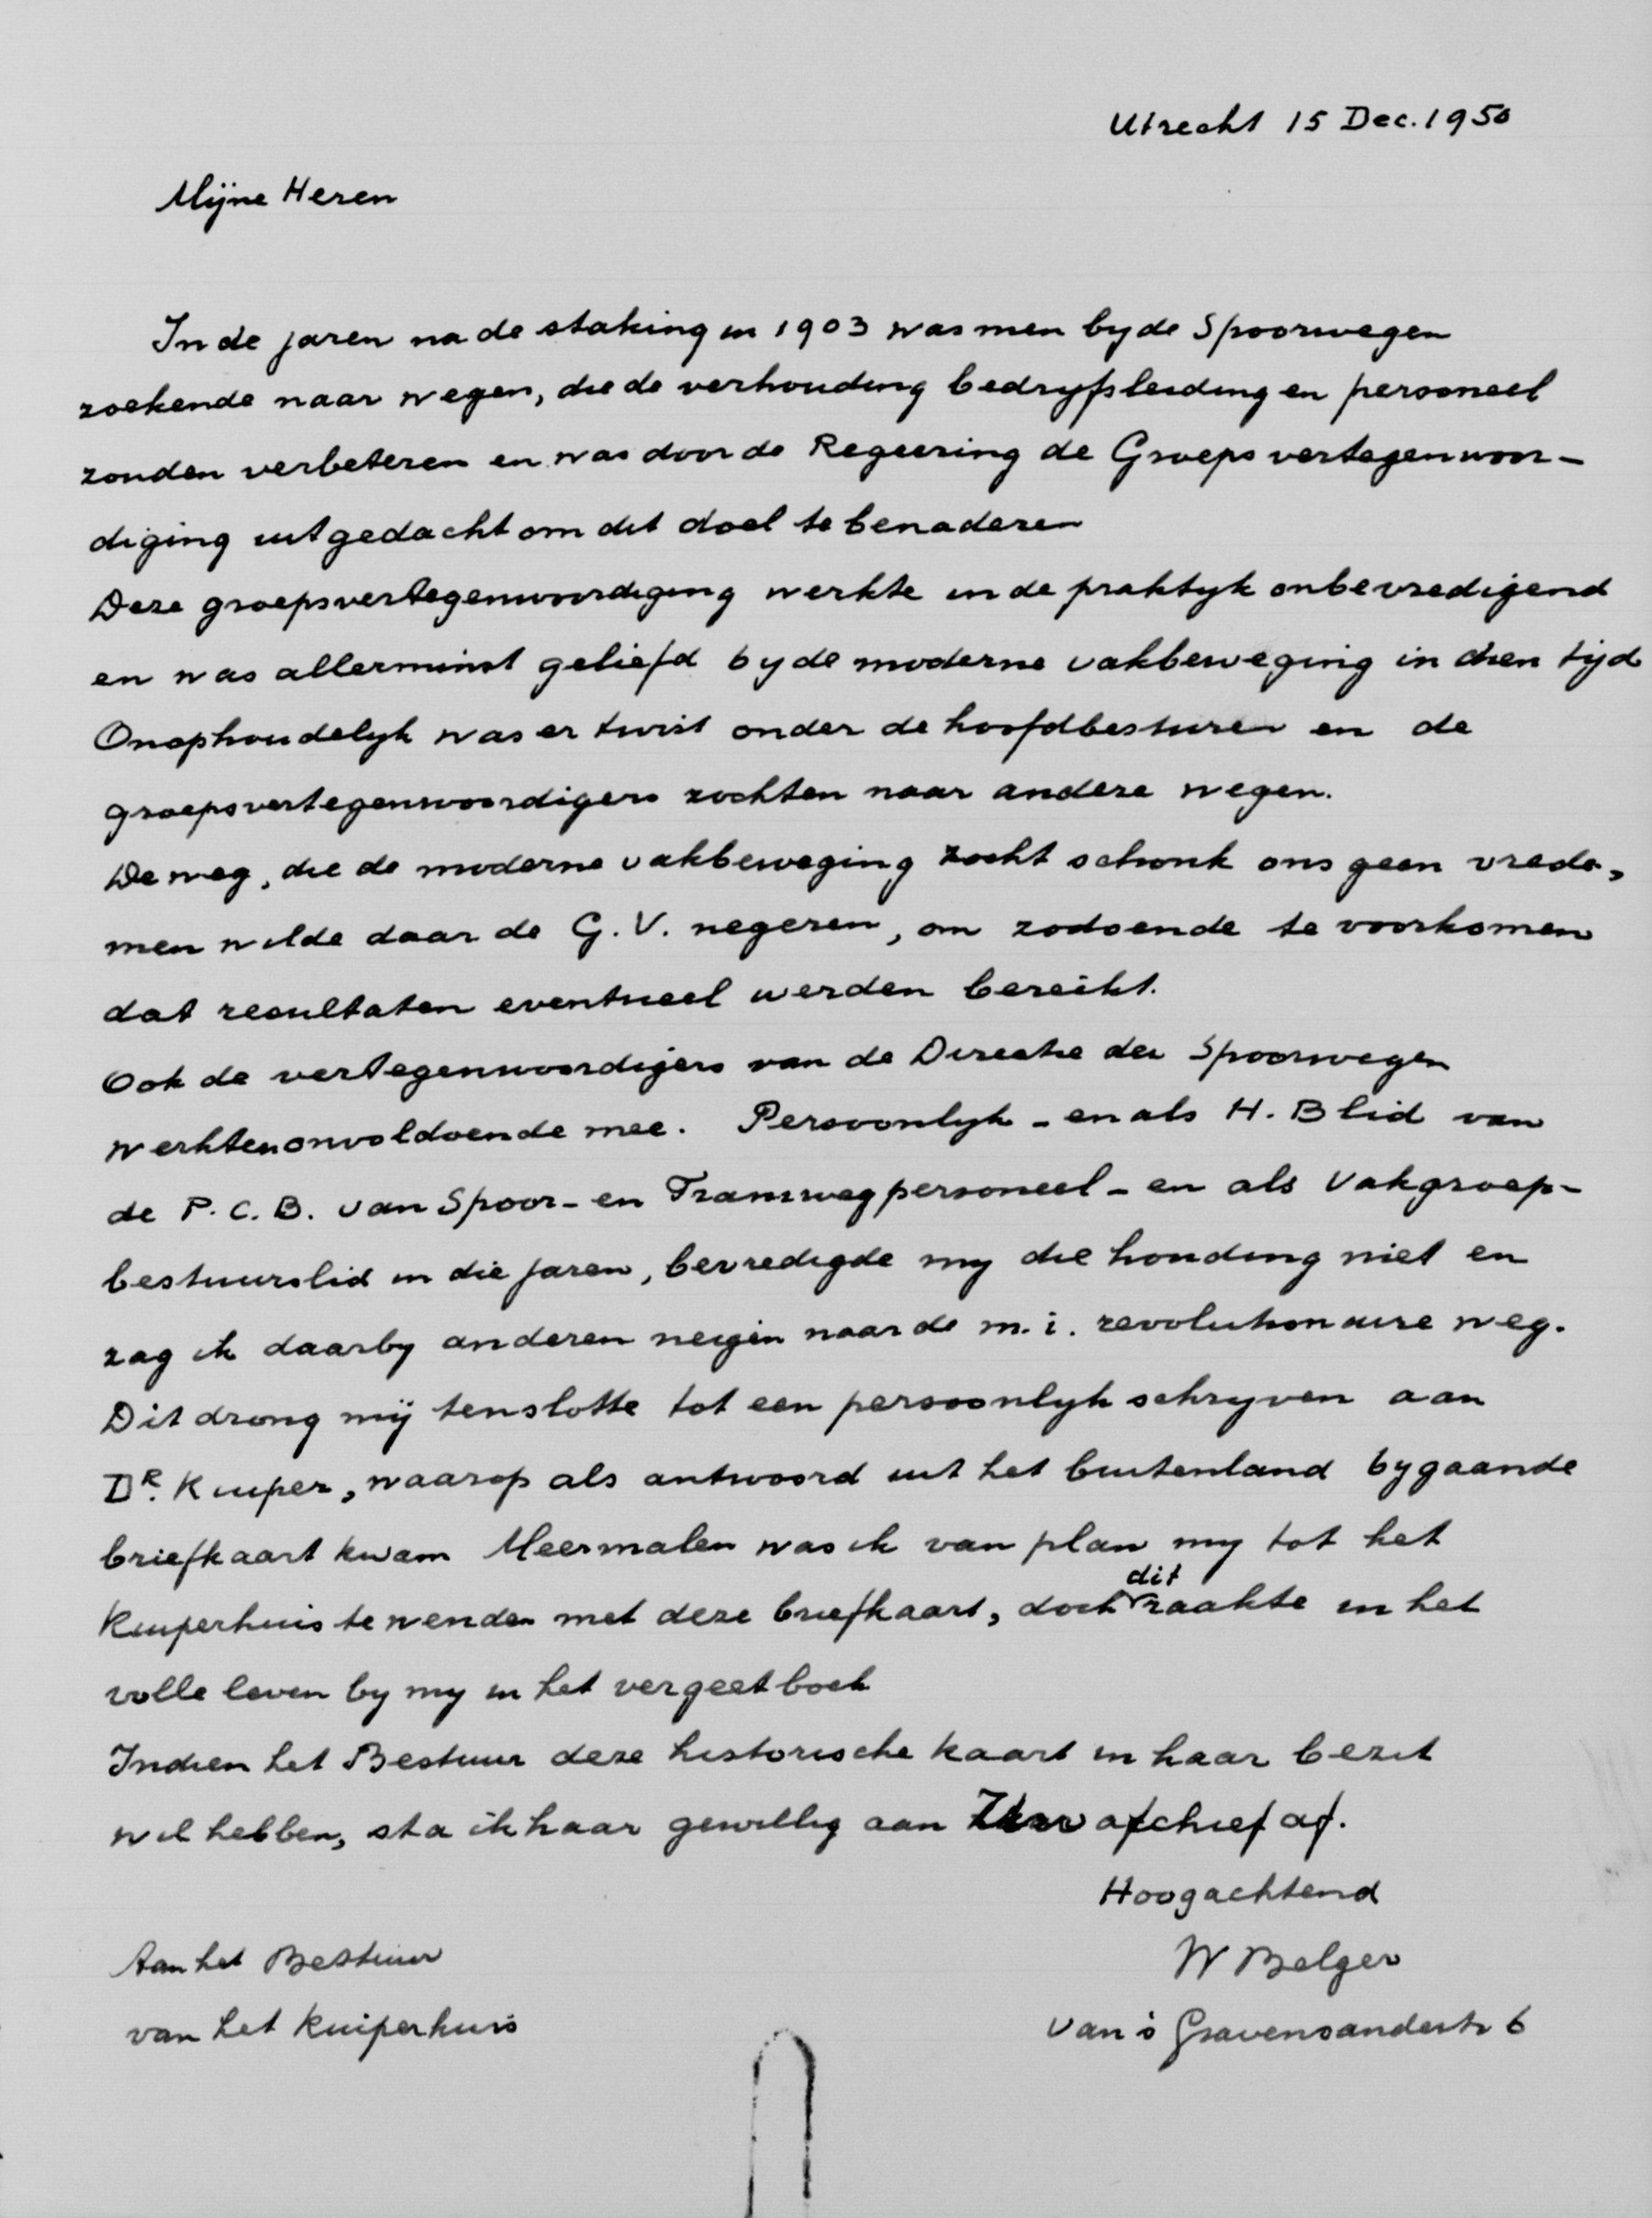 Utrecht 15 Dec. 1950
Mijne Heren
In de jaren na de staking in 1903 was men by de Spoorwegen
zoekende naar wegen, die de verhouding bedryfsleiding en personeel
zouden verbeteren en was door de Regeering de Groepsvertegenwoor-
diging uitgedacht om dit doel te benaderen
Deze groepsvertegenwoordiging werkte in de praktyk onbevredigend
en was allerminst geliefd by de moderne vakbeweging in dien tijd
Onophoudelyk was er twist onder de hoofdbesturen en de
groepsvertegenwoordigers zochten naar andere wegen.
De weg, die de moderne vakbeweging zocht schonk ons geen vrede,
men wilde daar de G.V. negeren, om zodoende te voorkomen
dat resultaten eventueel werden bereikt.
Ook de vertegenwoordigers van de Directie der Spoorwegen
werkten onvoldoende mee. Persoonlyk - en als H. B lid van
de P.C.B. van Spoor- en Tramwegpersoneel - en als Vakgroep-
bestuurslid in die jaren, bevredigde my die houding niet en
zag ik daarby anderen neigen naar de m.i. revolutionaire weg.
Dit drong mij tenslotte tot een persoonlyk schryven aan
DR. Kuiper, waarop als antwoord uit het buitenland bygaande
briefkaart kwam Meermalen was ik van plan my tot het
Kuiperhuis te wenden met deze briefkaart, doch dit raakte in het
volle leven by my in het vergeetboek
Indien het Bestuur deze historische kaart in haar bezit
wil hebben, sta ik haar gewillig aan Uw archief af.
Hoogachtend
W Belger
van 's Gravensandestr 6
Aan het Bestuur
van het Kuiperhuis